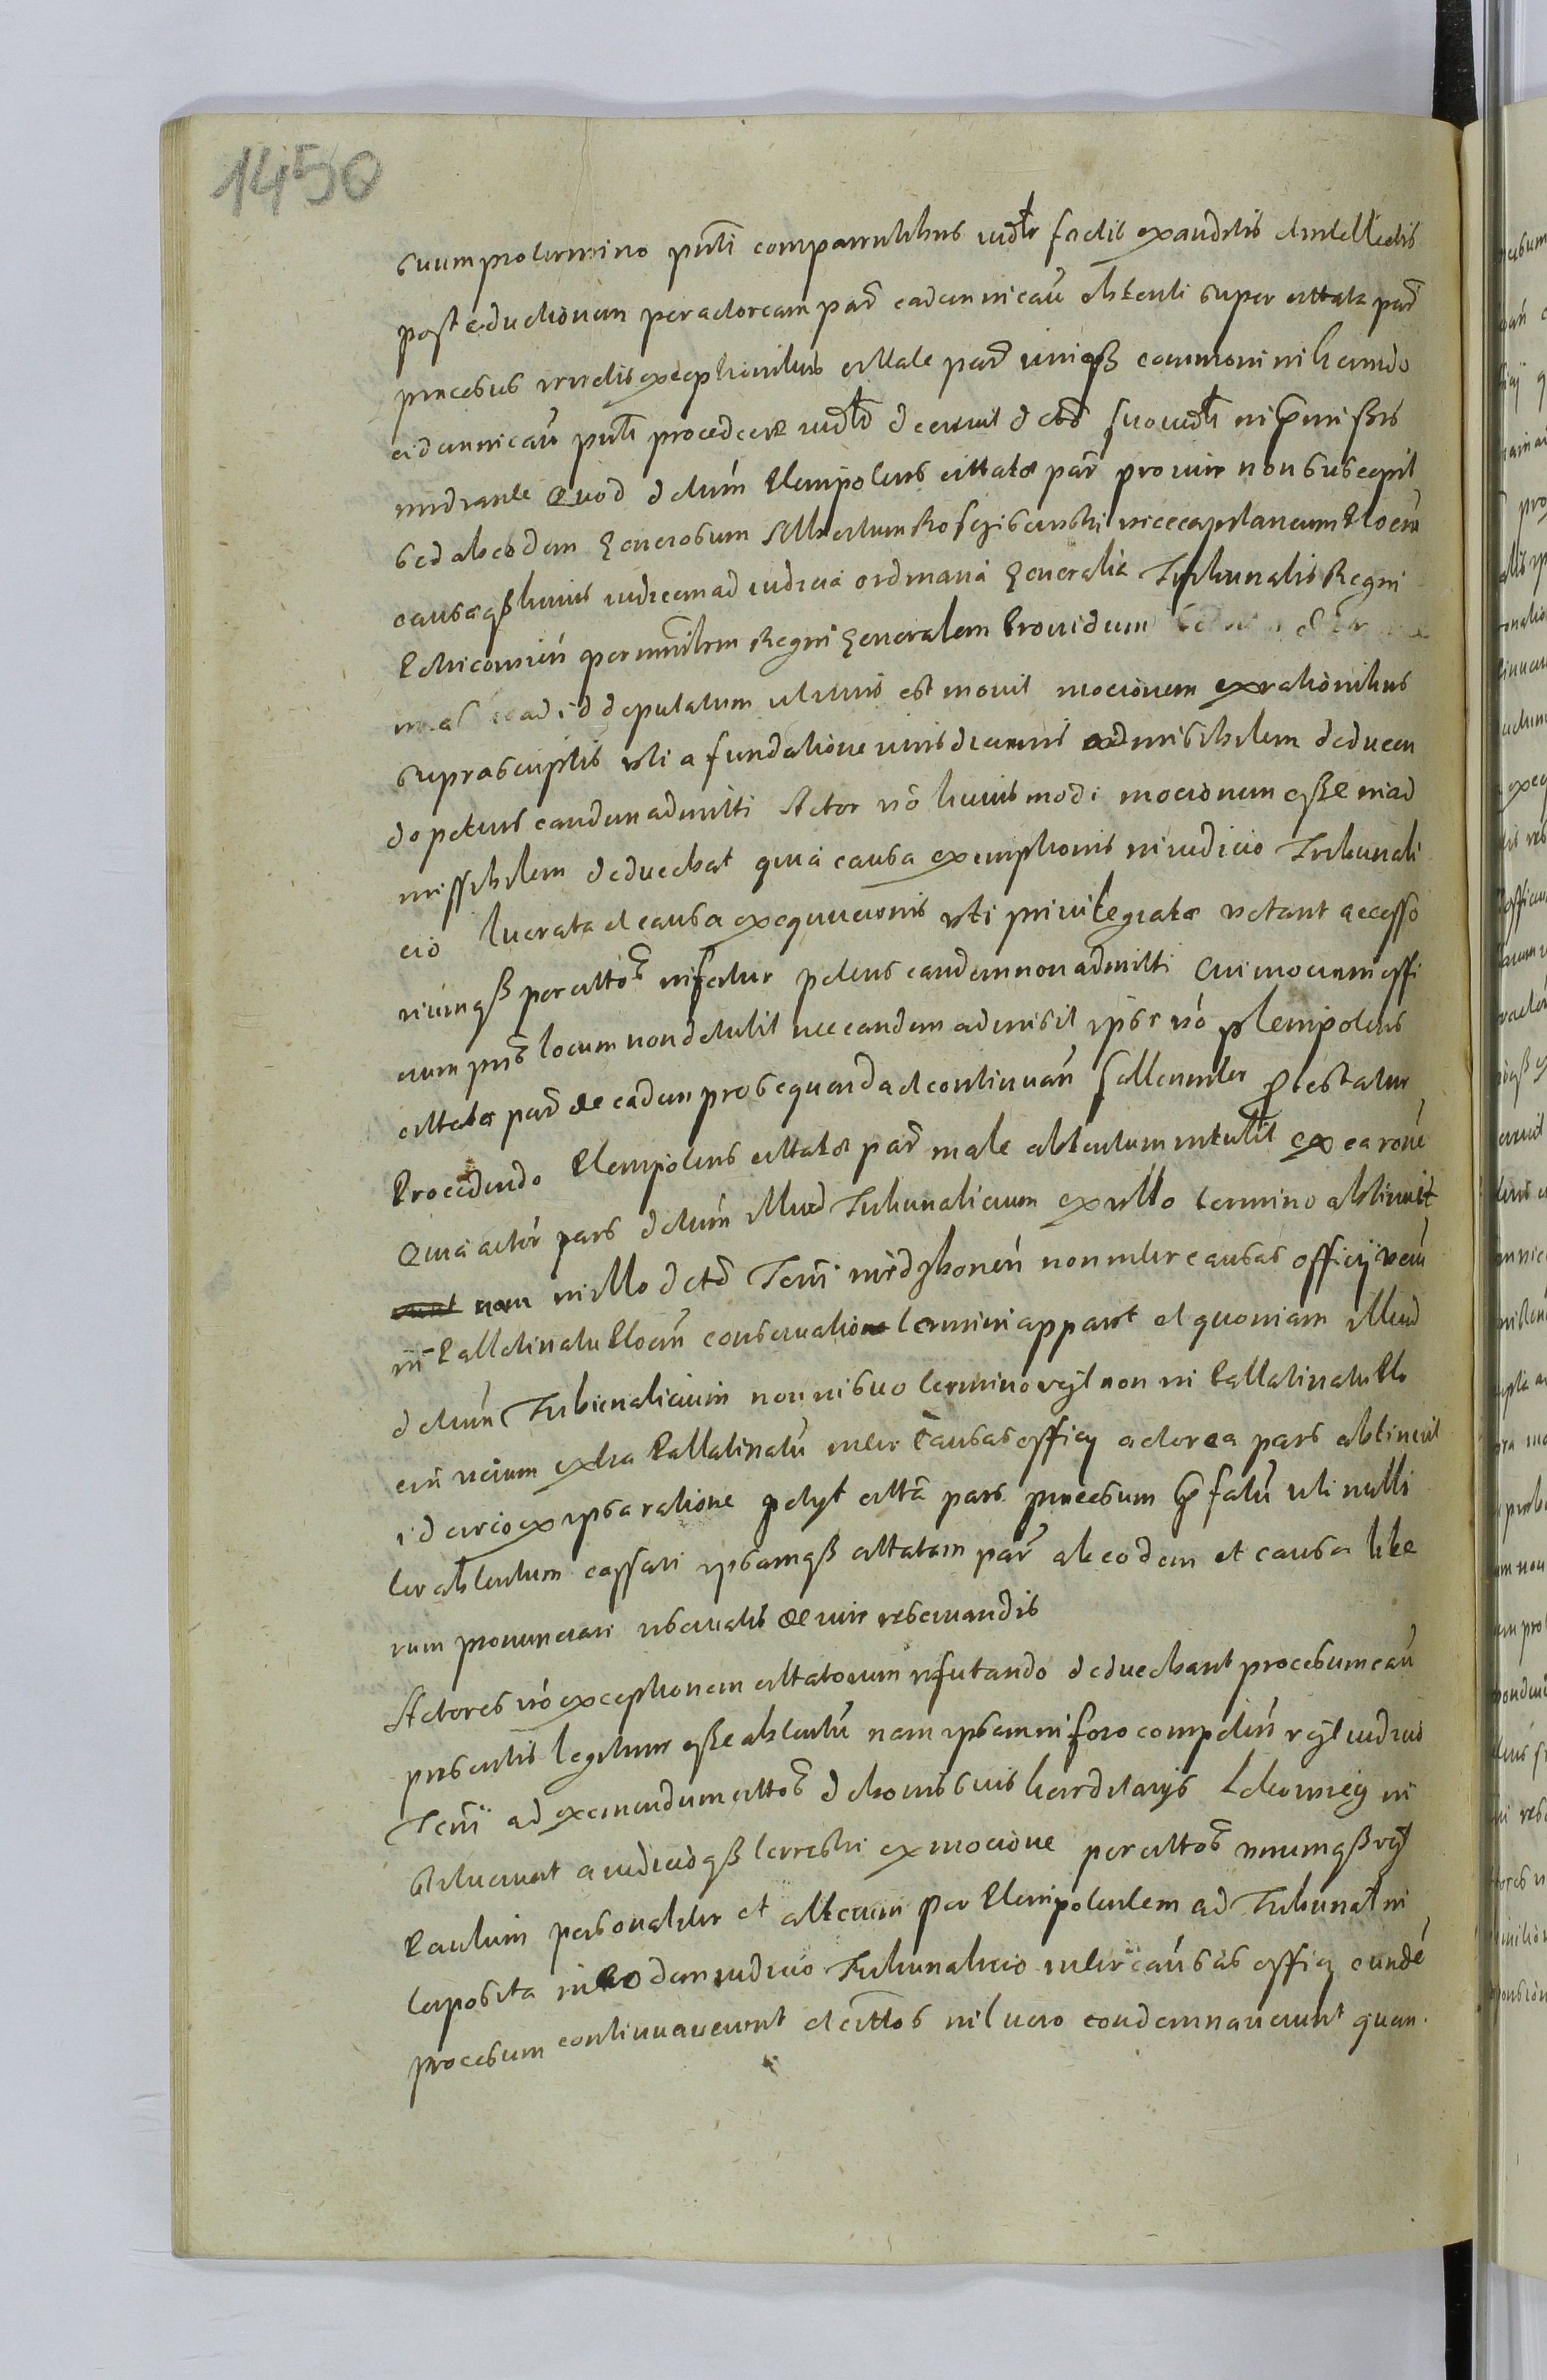 1450
suum pro termino pnti comparentibus iudlr factis exauditis et intellectis
post eductionem per actoream par eadem in cau obtenti super cittata par
processus iuridis exceptionibus cittatae par iuriqß communi inhaerendo
eidem in cau pnti procedere iudlr decrevit dctd suo iudli in pmissis
mediante Quod dctum Plenipotens cittatae par pro iure non suscepit
sed ab eodem Generosum Albertum vicecapitaneum Plocen
causaeqß huius iudicem ad iudicia ordinaria Generalis Tribunalis Regni
Petricovien per Regni Generalem Providum
ad id deputatum usum est movit mocionem ex rationibus
suprascriptis uti a fundatione iurisdicionis admissibilem deducen
do petens eandem admitti Actor vo huiusmodi mocionem esße inad
missibilem deducebat quia causa exemptionis in iudicio Tribunali
cio lucrata et causa exequucionis uti privilegiata vetant accesso
riumqß per cittos infertur petens eandem non admitti Cui mocioni offi
cium pns locum non detulit nec eandem admisit ipse vo plenipotens
cittatae par de eadem prosequenda et continuan sollemniter protestatur
Procedendo Plenipotens cittatae par male obtentum intulit ex ea rone
Quia actor pars dctum illud Tribunalicium ex ullo termino obtinuit
nam in illo dctd Tenri non inter causas officij veru
in Pallatinatu Plocen conservatio termini apparet et quoniam illud
dctum Tribunalicium non in suo termino vejt non in Pallatinatu Plo
cen verum extra Pallatinatu inter causas officij actorea pars obtinuit
idcirco ex ipsa ratione petyt citta pars processum pfatu uti nulli
ter obtentum cassari ipsamqß cittatam par ab eodem et causa libe
ram pronunciari reservatis de iure reservandis
Actores vo exceptionem cittatorum refutando deducebant processum cau
prescriptis legitime esße obtentu nam ipsam in foro competen vejt iudicio
Tenri ad eximendum cittos de bonis suis haereditarijs in
stituerunt a iudicioqß terrestri ex mocione per cittos unumqß vejt
Paulum personaliter et alterum per Plenipotentem ad Tribunal in
terposita in eodem iudicio Tribunalicio inter causas officij eunde
processum continuaverunt et cittos in lucro condemnaverunt quan.